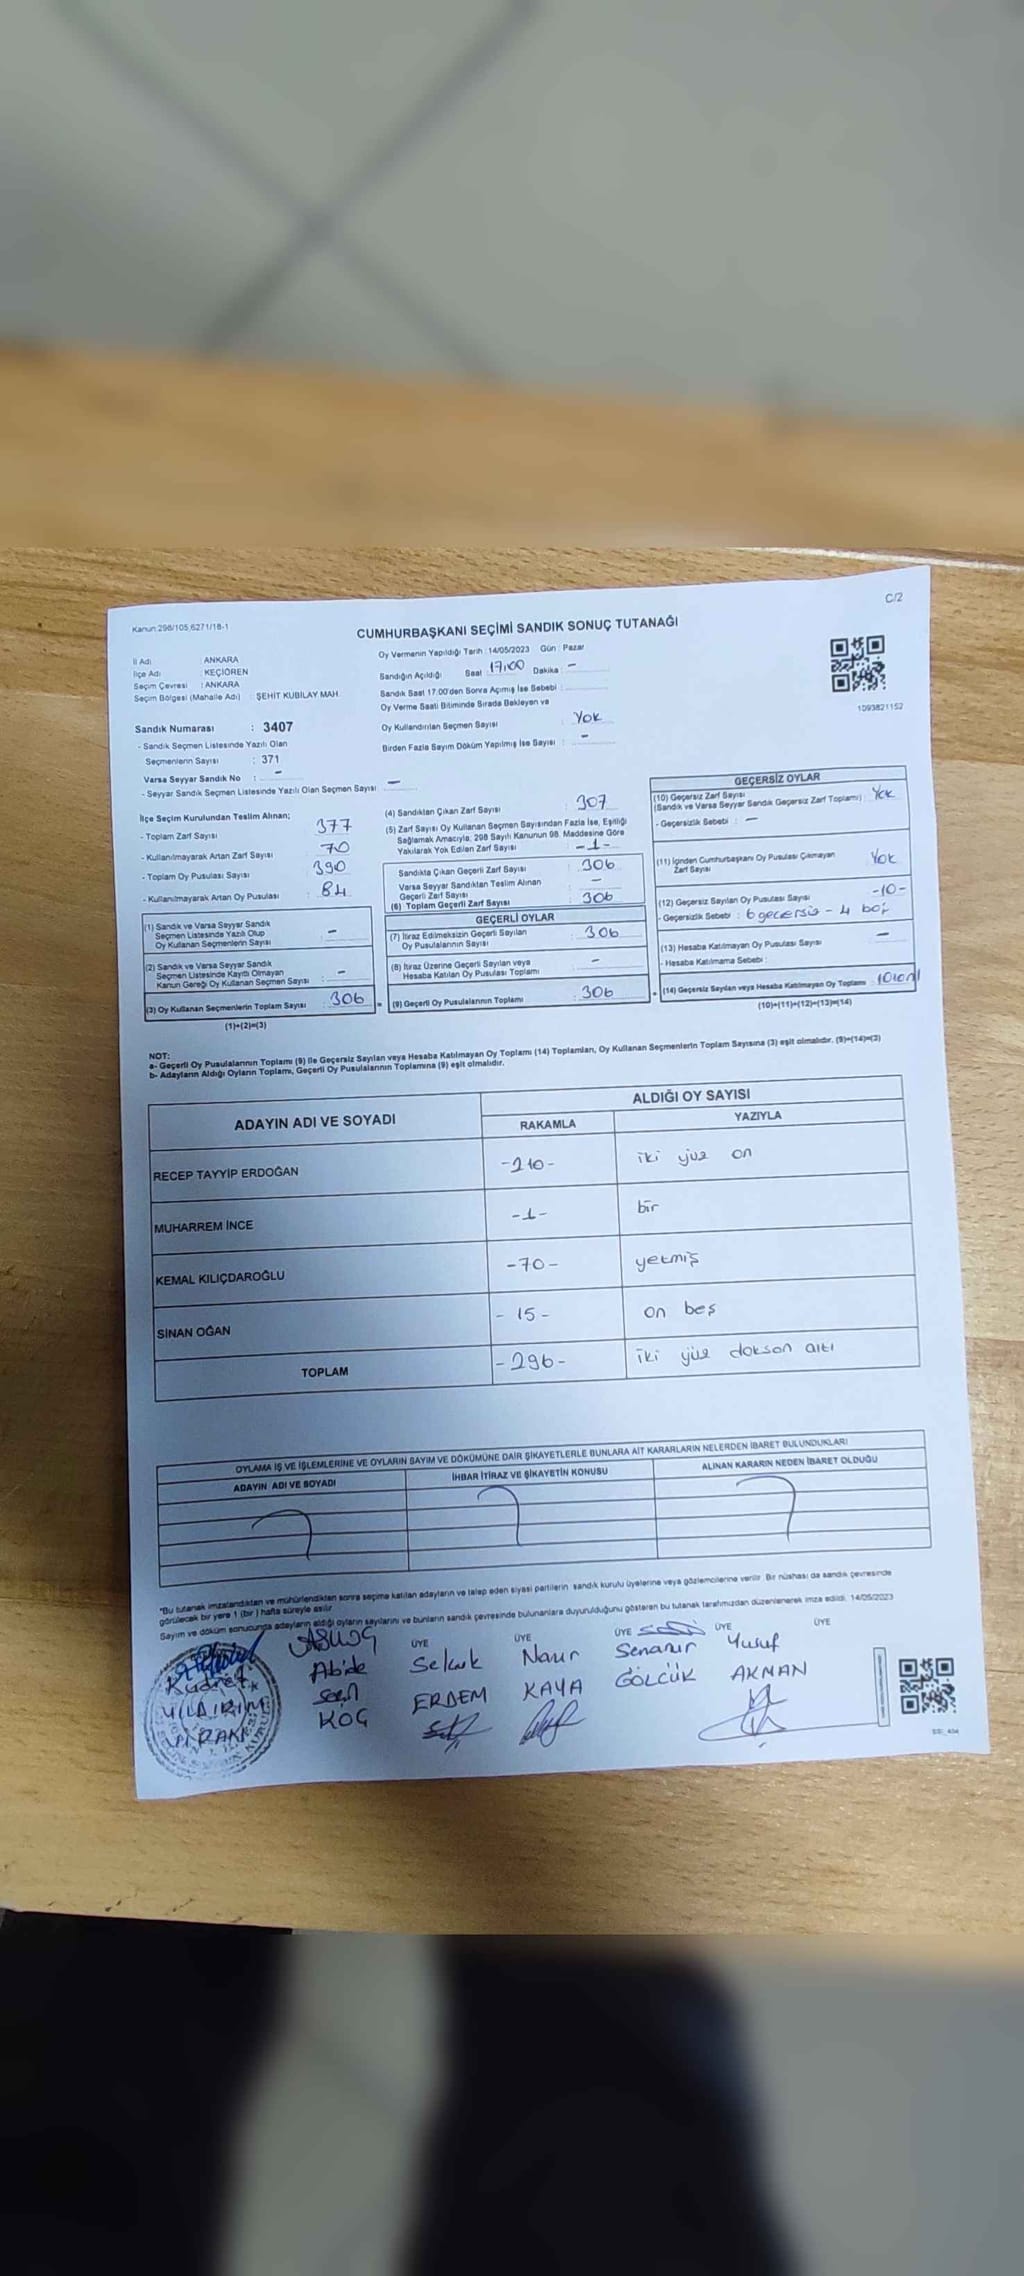 C/2
Kanun:298/105,6271/18-1
CUMHURBAŞKANI SEÇİMİ SANDIK SONUÇ TUTANAĞI
İl Adı : ANKARA
İlçe Adı : KEÇİÖREN
Seçim Çevresi : ANKARA
Seçim Bölgesi (Mahalle Adı) : ŞEHİT KUBİLAY MAH.
Oy Vermenin Yapıldığı Tarih : 14/05/2023 Gün : Pazar
Sandığın Açıldığı Saat 17:00 Dakika : -
Sandık Saat 17.00'den Sonra Açımış İse Sebebi :
Oy Verme Saati Bitiminde Sırada Bekleyen ve
Oy Kullandırılan Seçmen Sayısı : Yok
Birden Fazla Sayım Döküm Yapılmış İse Sayısı : -
1093821152
Sandık Numarası : 3407
- Sandık Seçmen Listesinde Yazılı Olan
Seçmenlerin Sayısı : 371
Varsa Seyyar Sandık No : -
- Seyyar Sandık Seçmen Listesinde Yazılı Olan Seçmen Sayısı : -
İlçe Seçim Kurulundan Teslim Alınan;
- Toplam Zarf Sayısı : 377
- Kullanılmayarak Artan Zarf Sayısı : 70
- Toplam Oy Pusulası Sayısı : 390
- Kullanılmayarak Artan Oy Pusulası : 84
(1) Sandık ve Varsa Seyyar Sandık
Seçmen Listesinde Yazılı Olup
Oy Kullanan Seçmenlerin Sayısı : -
(2) Sandık ve Varsa Seyyar Sandık
Seçmen Listesinde Kayıtlı Olmayan
Kanun Gereği Oy Kullanan Seçmen Sayısı : -
(3) Oy Kullanan Seçmenlerin Toplam Sayısı : 306
(1)+(2)=(3)
(4) Sandıktan Çıkan Zarf Sayısı : 307
(5) Zarf Sayısı Oy Kullanan Seçmen Sayısından Fazla İse, Eşitliği
Sağlamak Amacıyla; 298 Sayılı Kanunun 98. Maddesine Göre
Yakılarak Yok Edilen Zarf Sayısı : -1-
Sandıkta Çıkan Geçerli Zarf Sayısı : 306
Varsa Seyyar Sandıktan Teslim Alınan
Geçerli Zarf Sayısı : -
(6) Toplam Geçerli Zarf Sayısı : 306
GEÇERLİ OYLAR
(7) İtiraz Edilmeksizin Geçerli Sayılan
Oy Pusulalarının Sayısı : 306
(8) İtiraz Üzerine Geçerli Sayılan veya
Hesaba Katılan Oy Pusulası Toplamı : -
(9) Geçerli Oy Pusulalarının Toplamı : 306
GEÇERSİZ OYLAR
(10) Geçersiz Zarf Sayısı
(Sandık ve Varsa Seyyar Sandık Geçersiz Zarf Toplamı) : Yok
- Geçersizlik Sebebi : -
(11) İçinden Cumhurbaşkanı Oy Pusulası Çıkmayan
Zarf Sayısı : Yok
(12) Geçersiz Sayılan Oy Pusulası Sayısı : -10-
- Geçersizlik Sebebi : 6 geçersiz - 4 boş
(13) Hesaba Katılmayan Oy Pusulası Sayısı : -
- Hesaba Katılmama Sebebi :
(14) Geçersiz Sayılan veya Hesaba Katılmayan Oy Toplamı : 10(on)
(10)+(11)+(12)+(13)=(14)
NOT:
a- Geçerli Oy Pusulalarının Toplamı (9) ile Geçersiz Sayılan veya Hesaba Katılmayan Oy Toplamı (14) Toplamları, Oy Kullanan Seçmenlerin Toplam Sayısına (3) eşit olmalıdır. (9)+(14)=(3)
b- Adayların Aldığı Oyların Toplamı, Geçerli Oy Pusulalarının Toplamına (9) eşit olmalıdır.
ADAYIN ADI VE SOYADI ALDIĞI OY SAYISI
RAKAMLA YAZIYLA
RECEP TAYYİP ERDOĞAN -210- iki yüz on
MUHARREM İNCE -1- bir
KEMAL KILIÇDAROĞLU -70- yetmiş
SİNAN OĞAN -15- on beş
TOPLAM -296- iki yüz doksan altı
OYLAMA İŞ VE İŞLEMLERİNE VE OYLARIN SAYIM VE DÖKÜMÜNE DAİR ŞİKAYETLERLE BUNLARA AİT KARARLARIN NELERDEN İBARET BULUNDUKLARI
ADAYIN ADI VE SOYADI İHBAR İTİRAZ VE ŞİKAYETİN KONUSU ALINAN KARARIN NEDEN İBARET OLDUĞU
*Bu tutanak imzalandıktan ve mühürlendikten sonra seçime katılan adayların ve talep eden siyasi partilerin sandık kurulu üyelerine veya gözlemcilerine verilir. Bir nüshası da sandık çevresinde
görülecek bir yere 1 (bir) hafta süreyle asılır.
Sayım ve döküm sonucunda adayların aldığı oyların sayılarını ve bunların sandık çevresinde bulunanlara duyurulduğunu gösteren bu tutanak tarafımızdan düzenlenerek imza edildi. 14/05/2023
ÜYE ÜYE ÜYE ÜYE ÜYE
Kudret Abide Selçuk Nazır Senanur Yusuf
YILDIRIM Seçil ERDEM KAYA GÖLCÜK AKMAN
KOÇ